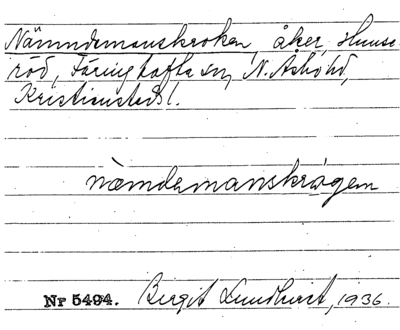 Nämndemanskroken, åker, Hunse-
röd, Färingtofta sn, N. Åsbo hd,
Kristianstads l.
næmdemanskrågen
Nr 5494. Birgit Lundkvist, 1936.